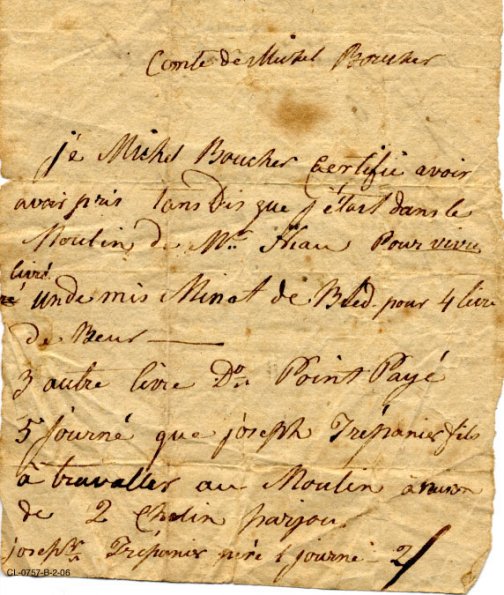 Comte de Michel Boucher
je Michel Boucher Certifie avoir
avoir pris tans Dis que j'étast dans le
Moulin de Mr. hiau Pour vivre
livré
un de mis Minot de Bléd. pour 4 livre
de Beur
3 autre livre Do. Point Payé
5 journé que joseph Trépanier fils
à travaller au Moulin à raison
de 2 Chelin parjour
joseph Trépanier père 1 journé 2/
CL-0757-B-2-06